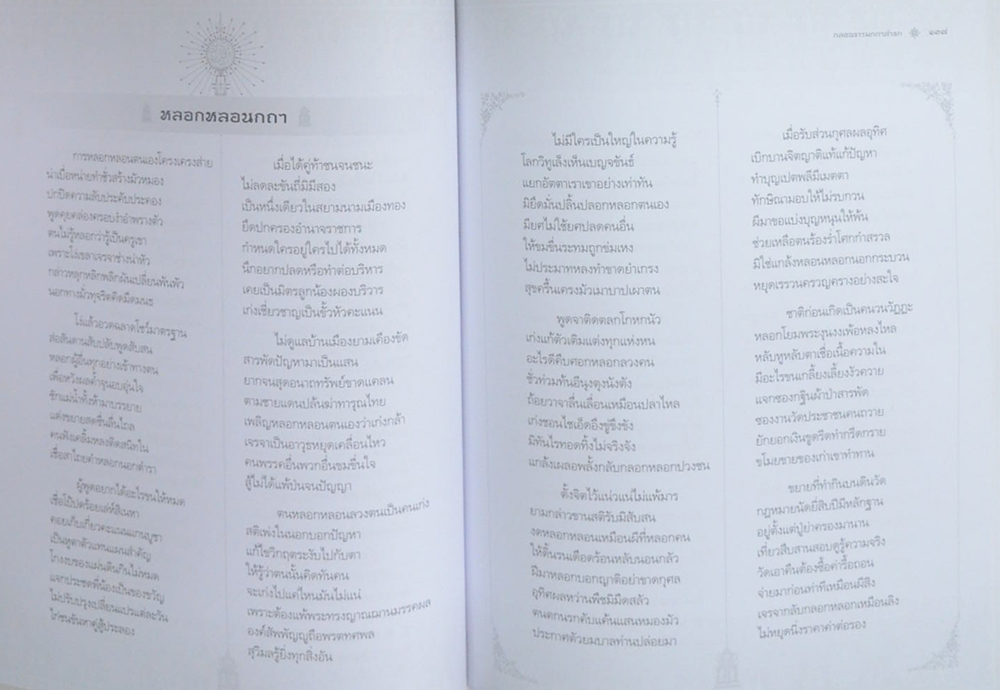 หลอกหลอนกถา
การหลอกหลอนตนเองโครงเครงส่าย
น่าเบื่อหน่ายทำชั่วสร้างมัวหมอง
ปกปิดความลับประคับประคอง
พูดคุยคล่องครอบงำอำพรางตัว
ตนไม่รู้หลอกว่ารู้เป็นครูเขา
เพราะโง่เขลาเจรจาช่างน่าหัว
กล่าวหลุกหลิกพลิกผันเปลี่ยนพันพัว
นอกทางมั่วทุจริตคิดมืดมนธ
โง่แล้วอวดฉลาดโชว์มาตรฐาน
ส่อสันดานสับปลับพูดสับสน
หลอกผู้อื่นทุกอย่างเข้าทางตน
เพื่อหวังผลค้ำจุนอบอุ่นใจ
ชักแม่น้ำทั้งห้ามาบรรยาย
แต่งขยายสดชื่นลื่นไถล
คนฟังเคลิ้มหลงติดสนิทใน
เชื่อสาไถยคำหลอกนอกตำรา
ผู้พูดอยากได้อะไรขนให้หมด
เป็นหูตาตัวแทนแผนสำคัญ
โกงงบของแผ่นดินกินไม่หมด
แจกประชดพี่น้องเป็นของขวัญ
ไม่ปรับปรุงเปลี่ยนแปรแต่ละวัน
ไก่ชนขันหาคู่สู้ประลอง
เมื่อได้คู่ท้าชนจนชนะ
ไม่ลดละขันถี่มิมีสอง
เป็นหนึ่งเดียวในสยามนามเมืองทอง
ยึดปกครองอำนาจราชการ
กำหนดใครอยู่ใครไปได้ทั้งหมด
นึกอยากปลดหรือทำต่อบริหาร
เคยเป็นมิตรลูกน้องผองบริวาร
เก่งเชี่ยวชาญเป็นขั้วหัวคะแนน
ไม่ดูแลบ้านเมืองยามเคืองขัด
สารพัดปัญหามาเป็นแสน
ยากจนสุดอนาถทรัพย์ขาดแคลน
ตามชายแดนปล้นฆ่าทารุณไทย
เพลิญหลอกหลอนตนเองว่าเก่งกล้า
เจรจาเป็นอาวุธหยุดเคลื่อนไหว
คนพรรคอื่นพวกอื่นขมขื่นใจ
สู้ไม่ได้แพ้ป่นจนปัญญา
ตนหลอกหลอนลวงตนเป็นคนเก่ง
สติเพ่งในนอกบอกปัญหา
แก้ไขวิกฤตระงับไปกับตา
ให้รู้ว่าตนนั้นคิดทันคน
จะเก่งไปแค่ไหนมันไม่แน่
เพราะต้องแพ้พระทรงญาณฌานมรรคผล
องค์สัพพัญญูถือพรตทศพล
สุวิมลรู้ยิ่งทุกสิ่งอัน
กลอนธรรมกถาสาธก ๑๓๗
ไม่มีใครเป็นใหญ่ในความรู้
โลกวิทูเล็งเห็นเบญจขันธ์
แยกอัตตาเราเขาอย่างเท่าทัน
มิยึดมั่นปลิ้นปลอกหลอกตนเอง
มียศไม่ใช้ยศปลดคนอื่น
ให้ขมขื่นระทมถูกข่มเหง
ไม่ประมาทหลงทำขาดยำเกรง
สุขครื้นเครงมัวเมาบาปเผาตน
พูดจาติดตลกโกหกนัว
เก่งแก้ตัวเติมแต่งทุกแห่งหน
อะไรดีคืบศอกหลอกลวงคน
ชั่วท่วมท้นอีนุงตุงนังดัง
ถ้อยวาจาลื่นเลื่อนเหมือนปลาไหล
เก่งชอนไชเอ็ดอึงขู่ขึงขัง
มิทันไรทอดทิ้งไม่จริงจัง
แกล้งเผลอพลั้งกลับกลอกหลอกปวงชน
ตั้งจิตไว้แน่วแน่ไม่แพ้มาร
ยามกล่าวขานสติรับมิสับสน
งดหลอกหลอนเหมือนผีที่หลอกคน
ให้ดิ้นรนเดือดร้อนหลับนอนกลัว
ผีมาหลอกบอกญาติอย่าขาดกุศล
อุทิศผลหว่านพืชมิมืดสลัว
ตนตกนรกคับแค้นแสนหมองมัว
ประกาศตัวยมบาลท่านปล่อยมา
เมื่อรับส่วนกุศลผลอุทิศ
เบิกบานจิตญาติแท้แก้ปัญหา
ทำบุญเปตพลีมีเมตตา
ทักษิณามอบให้ไม่รบกวน
ผีมาขอแบ่งบุญหนุนให้พ้น
ช่วยเหลือตนร้องร่ำโศกกำสรวล
มิใช่แกล้งหลอนหลอกนอกกระบวน
หยุดเรรวนครวญครางอย่างสะใจ
ชาติก่อนเกิดเป็นคนวนวัฏฏะ
หลอกโยมพระงุนงงเพ้อหลงไหล
หลับหูหลับตาเชื่อเนื้อความใน
มีอะไรขนเกลี้ยงเลี้ยงงัวควาย
แจกซองกฐินผ้าป่าสารพัด
ซองงานวัดประชาชนคนถวาย
ยักยอกเงินขูดรีดทำกรีดกราย
ขโมยขายของเก่าเขาทำทาน
ขยายที่ทำกินบนดินวัด
กฎหมายนัดยี่สิบปีมีหลักฐาน
อยู่ตั้งแต่ปู่ย่าครองมานาน
เที่ยวสืบสานสอบดูรู้ความจริง
วัดเอาคืนต้องซื้อค่ารื้อถอน
จ่ายมาก่อนทำทีเหมือนผีสิง
เจรจากลับกลอกหลอกเหมือนลิง
ไม่หยุดนิ่งราคาค่าต่อรอง